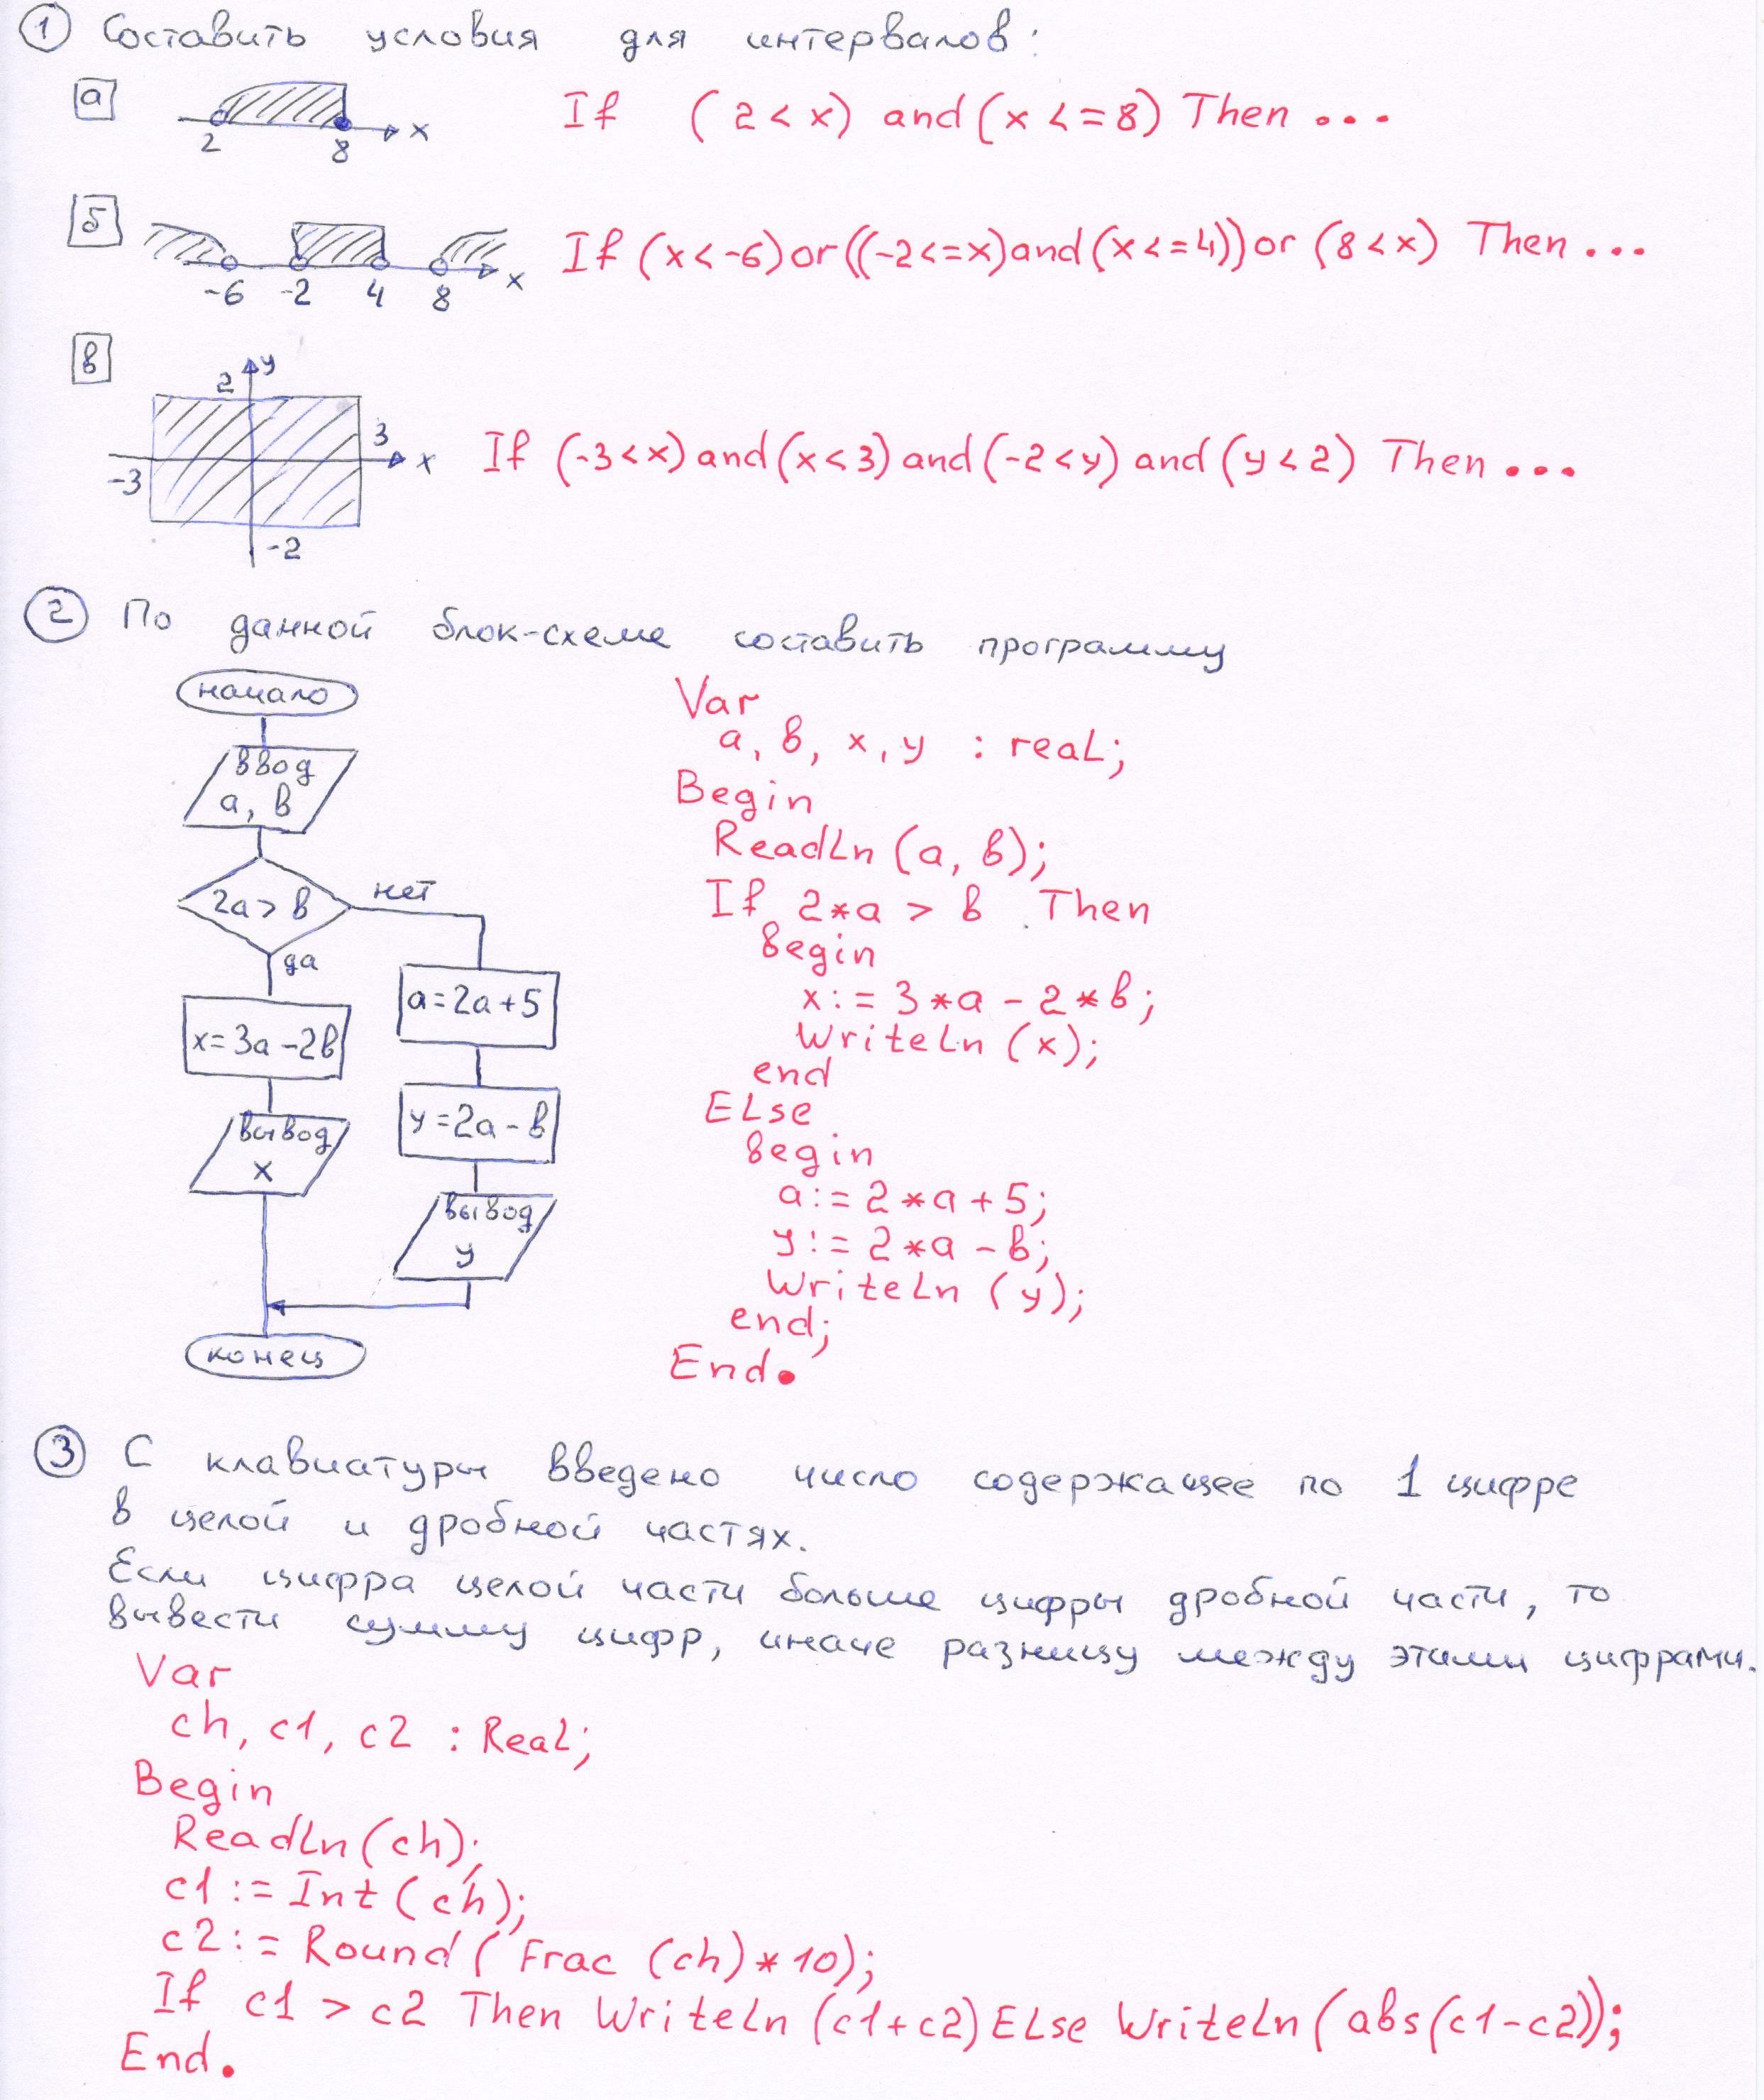 1 Составить условия для интервалов:
а
2 8 x
If (2 < x) and (x <= 8) Then ...
б
-6 -2 4 8 x
If (x < -6) or ((-2 <= x) and (x <= 4)) or (8 < x) Then ...
в
y
2
3
-3
x
-2
If (-3 < x) and (x < 3) and (-2 < y) and (y < 2) Then ...
2 По данной блок-схеме составить программу
начало
ввод
а, в
2а > в
нет
да
x = 3а - 2в
вывод
x
а = 2а + 5
y = 2а - в
вывод
y
конец
Var
а, в, x, y : real;
Begin
ReadLn (а, в);
If 2*а > в Then
begin
x := 3*а - 2*в;
WriteLn (x);
end
ELse
begin
а := 2*а + 5;
y := 2*а - в;
WriteLn (y);
end;
End.
3 С клавиатуры введено число содержащее по 1 цифре
в целой и дробной частях.
Если цифра целой части больше цифры дробной части, то
вывести сумму цифр, иначе разницу между этими цифрами.
Var
ch, c1, c2 : Real;
Begin
ReadLn (ch);
c1 := Int (ch);
c2 := Round ( Frac (ch) * 10);
If c1 > c2 Then WriteLn (c1+c2) ELse WriteLn (abs(c1-c2));
End.